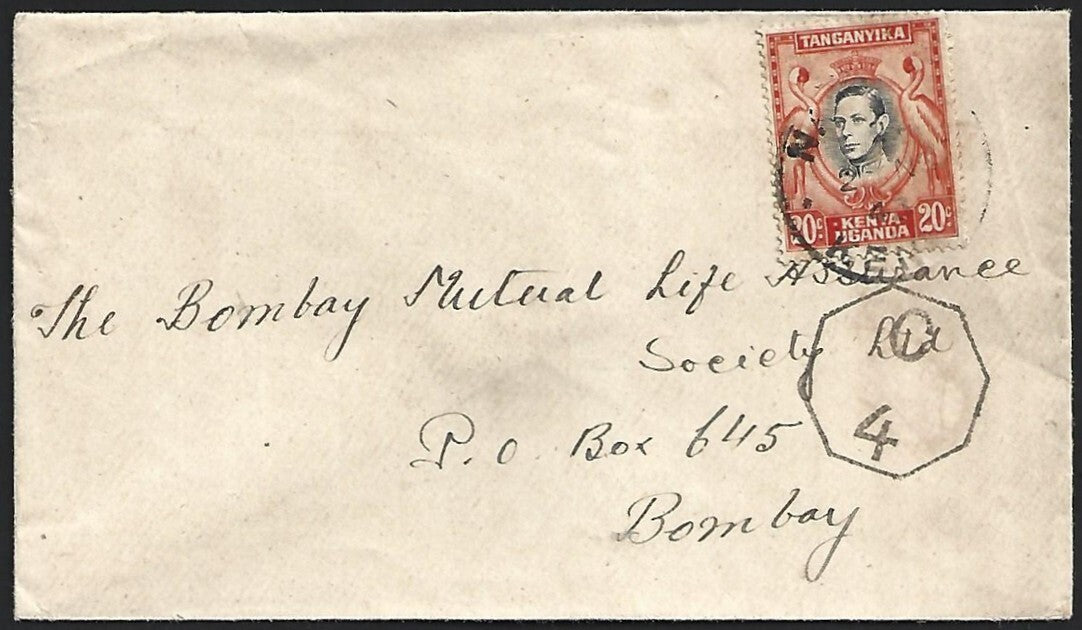 TANGANYIKA
20c KENYA UGANDA 20c
The Bombay Mutual Life Assurance
Society Ltd
C
4
P.O. Box 645
Bombay